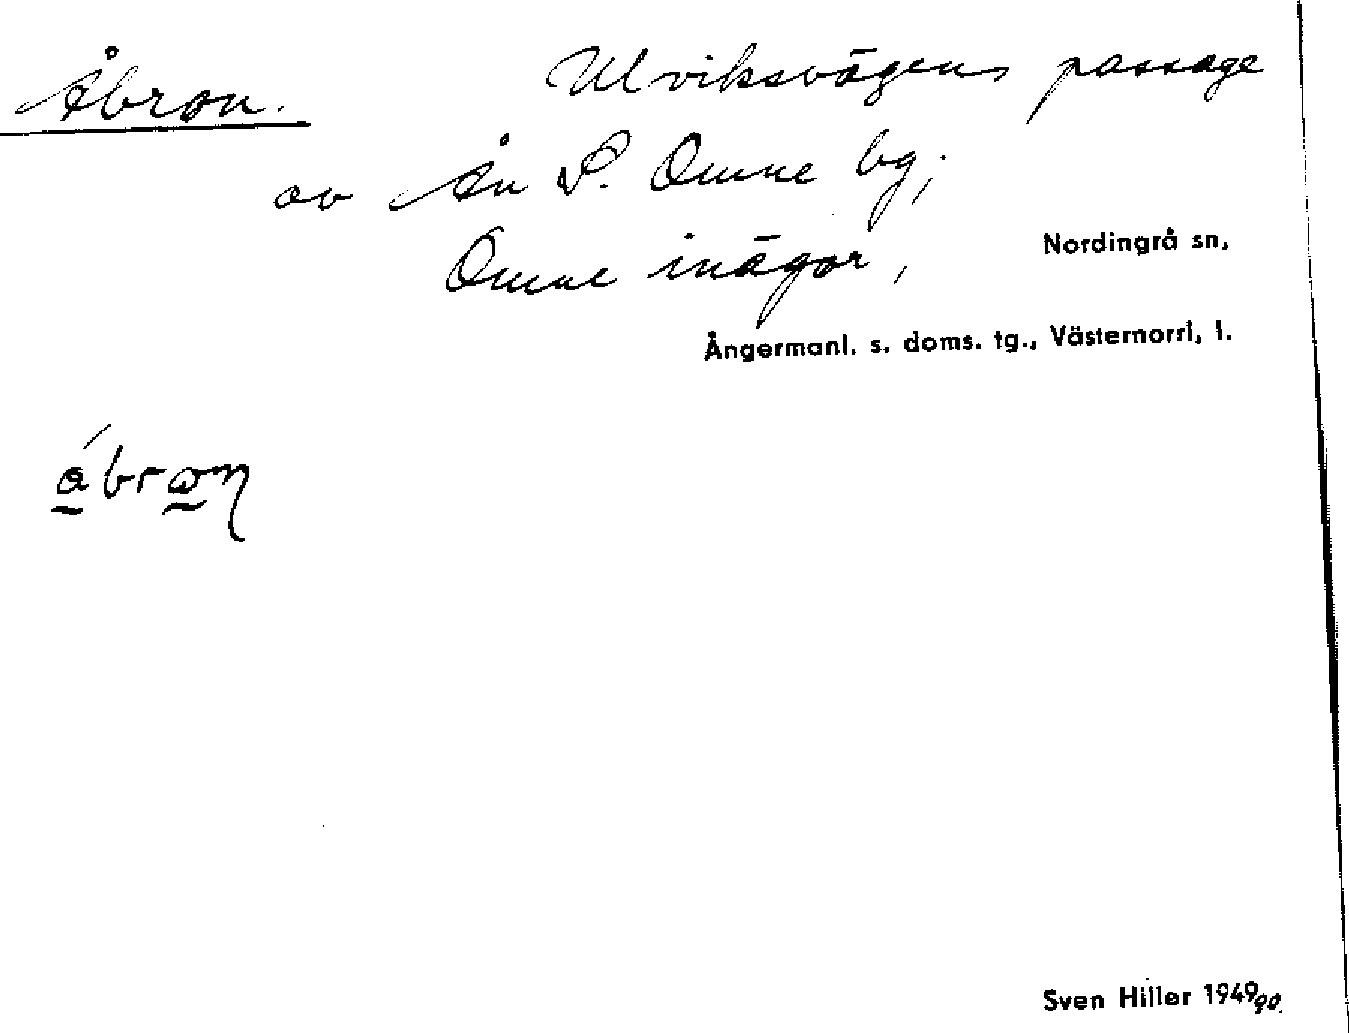 Åbron. Ulviksvägens passage
av Ån S. Omne bg;
Omne inägor, Nordingrå sn,
Ångermanl. s. doms. tg., Västernorrl, l.
åbron
Sven Hiller 1949